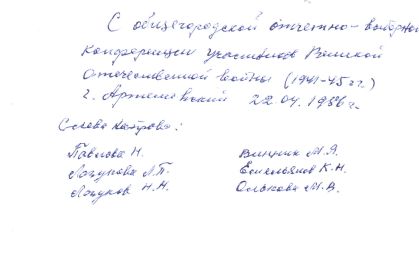 С общегородской отчетно-выборной
Конференции участников Великой
Отечественной войны (1941-45 гг.)
г. Артемовский 22.04.1986 г.
Слева направо:
Павлова Н. Винник М.Я.
Лопунова Л.П. Емельянов К.Н.
Лопунов Н.Н. Олькова М.В.